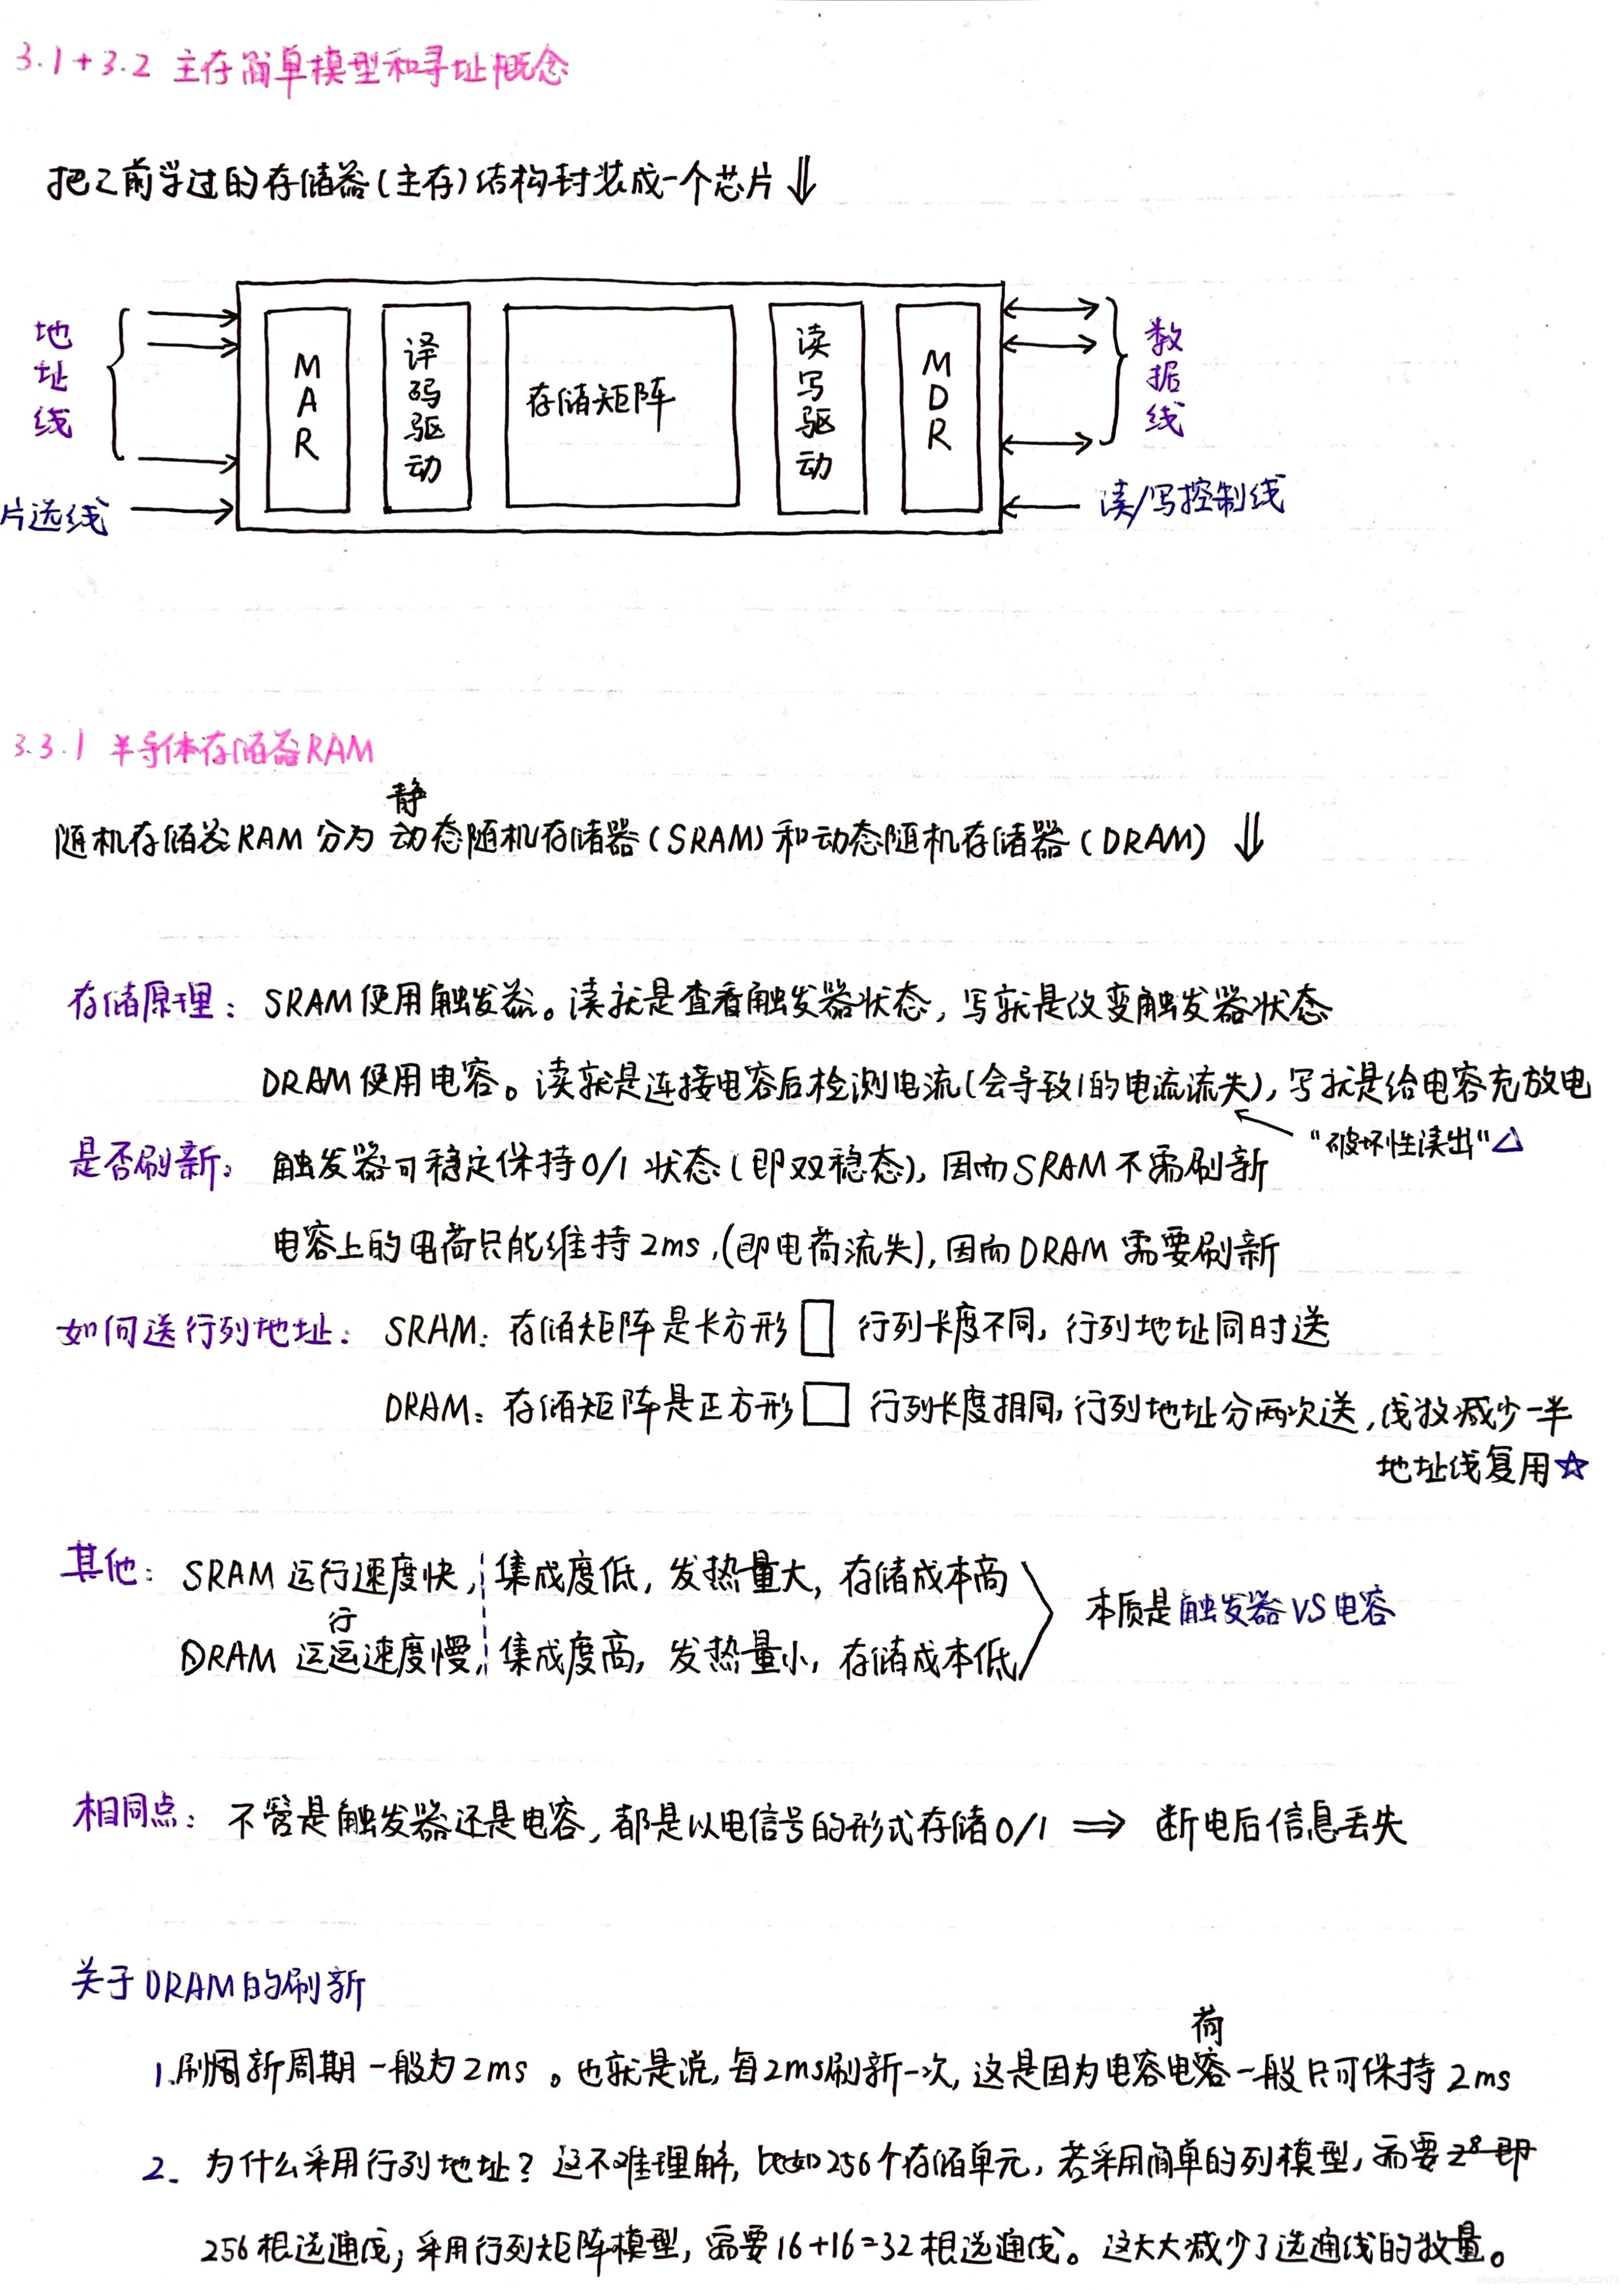 3.1+3.2 主存简单模型和寻址概念
把之前学过的存储器(主存)结构封装成一个芯片⇓
地址线
片选线
MAR
译码驱动
存储矩阵
读写驱动
MDR
数据线
读/写控制线
3.3.1 半导体存储器RAM
静
随机存储器RAM 分为 动态随机存储器(SRAM)和动态随机存储器(DRAM) ⇓
存储原理: SRAM使用触发器。读就是查看触发器状态, 写就是改变触发器状态
DRAM使用电容。读就是连接电容后检测电流(会导致1的电流流失), 写就是给电容充放电
"破坏性读出"△
是否刷新: 触发器可稳定保持0/1 状态(即双稳态), 因而SRAM不需刷新
电容上的电荷只能维持2ms,(即电荷流失), 因而DRAM 需要刷新
如何送行列地址: SRAM: 存储矩阵是长方形▯ 行列长度不同, 行列地址同时送
DRAM: 存储矩阵是正方形□ 行列长度相同, 行列地址分两次送, 线数减少一半
地址线复用☆
其他: SRAM 运行速度快, 集成度低, 发热量大, 存储成本高
行
DRAM 运运速度慢, 集成度高, 发热量小, 存储成本低
本质是触发器VS电容
相同点: 不管是触发器还是电容, 都是以电信号的形式存储0/1 ⇒ 断电后信息丢失
关于DRAM的刷新
荷
1.刷周新周期一般为2ms 。也就是说, 每2ms刷新一次, 这是因为电容电容一般只可保持2ms
2. 为什么采用行列地址? 这不难理解, 比如256个存储单元, 若采用简单的列模型, 需要2⁸即
256根选通线; 采用行列矩阵模型, 需要16+16=32根选通线。这大大减少了选通线的数量。